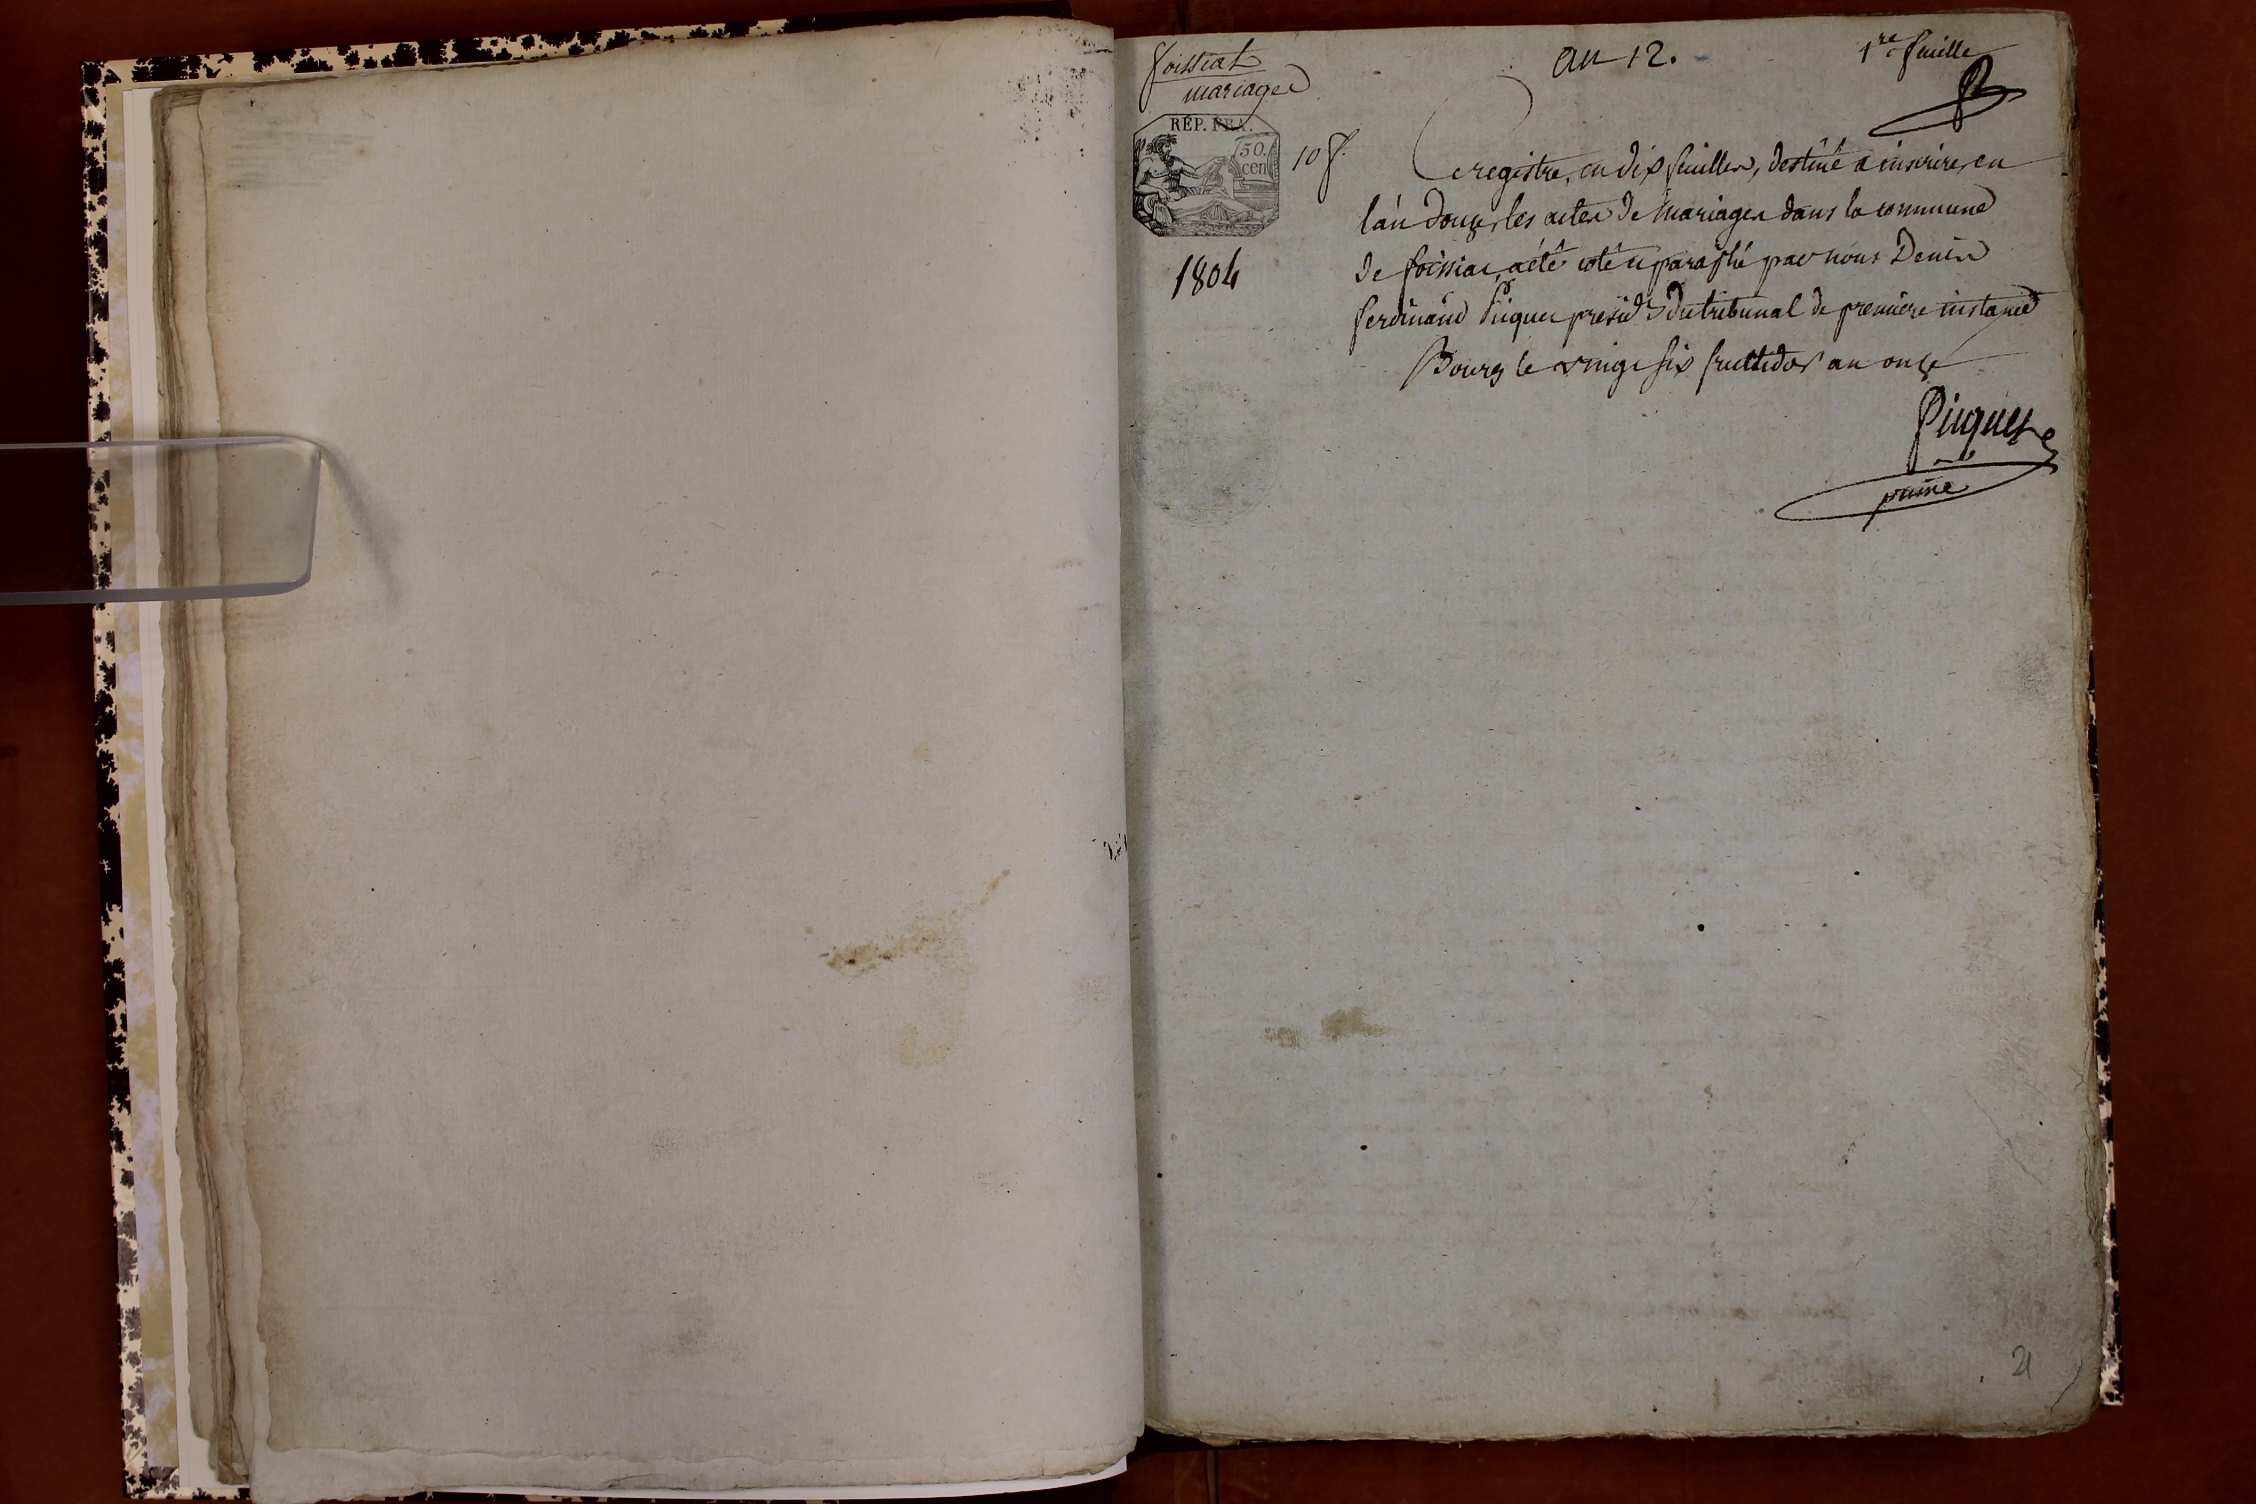 foissiat
mariages
an 12.
1re feuille
RÉP. FRA.
50.
cen
10 f.
1804
Ce registre, en dix feuilles, destiné a inscrire, en
l'an douze, les actes de mariages dans la commune
de foissiac, a été coté et paraphé par nous Denis
ferdinand Piquet présidt du tribunal de première instance
Bourg le vingt six fructidor an onze
Piquet
prime
21